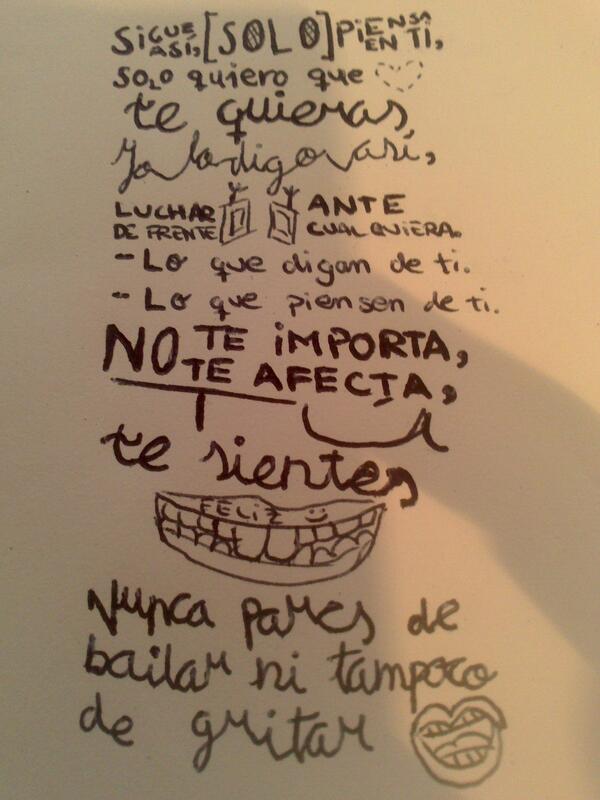 SiGUE ASÍ, [SOLO] PiENSA EN Ti,
solo quiero que
te quieras,
Yo lo digo así,
LUCHAR DE FRENTE ANTE CUALQUiERA.
- Lo que digan de ti.
- Lo que piensen de ti.
NO TE iMPORTA,
TE AFECTA,
te sientes
FELiZ :)
Nunca pares de
bailar ni tampoco
de gritar